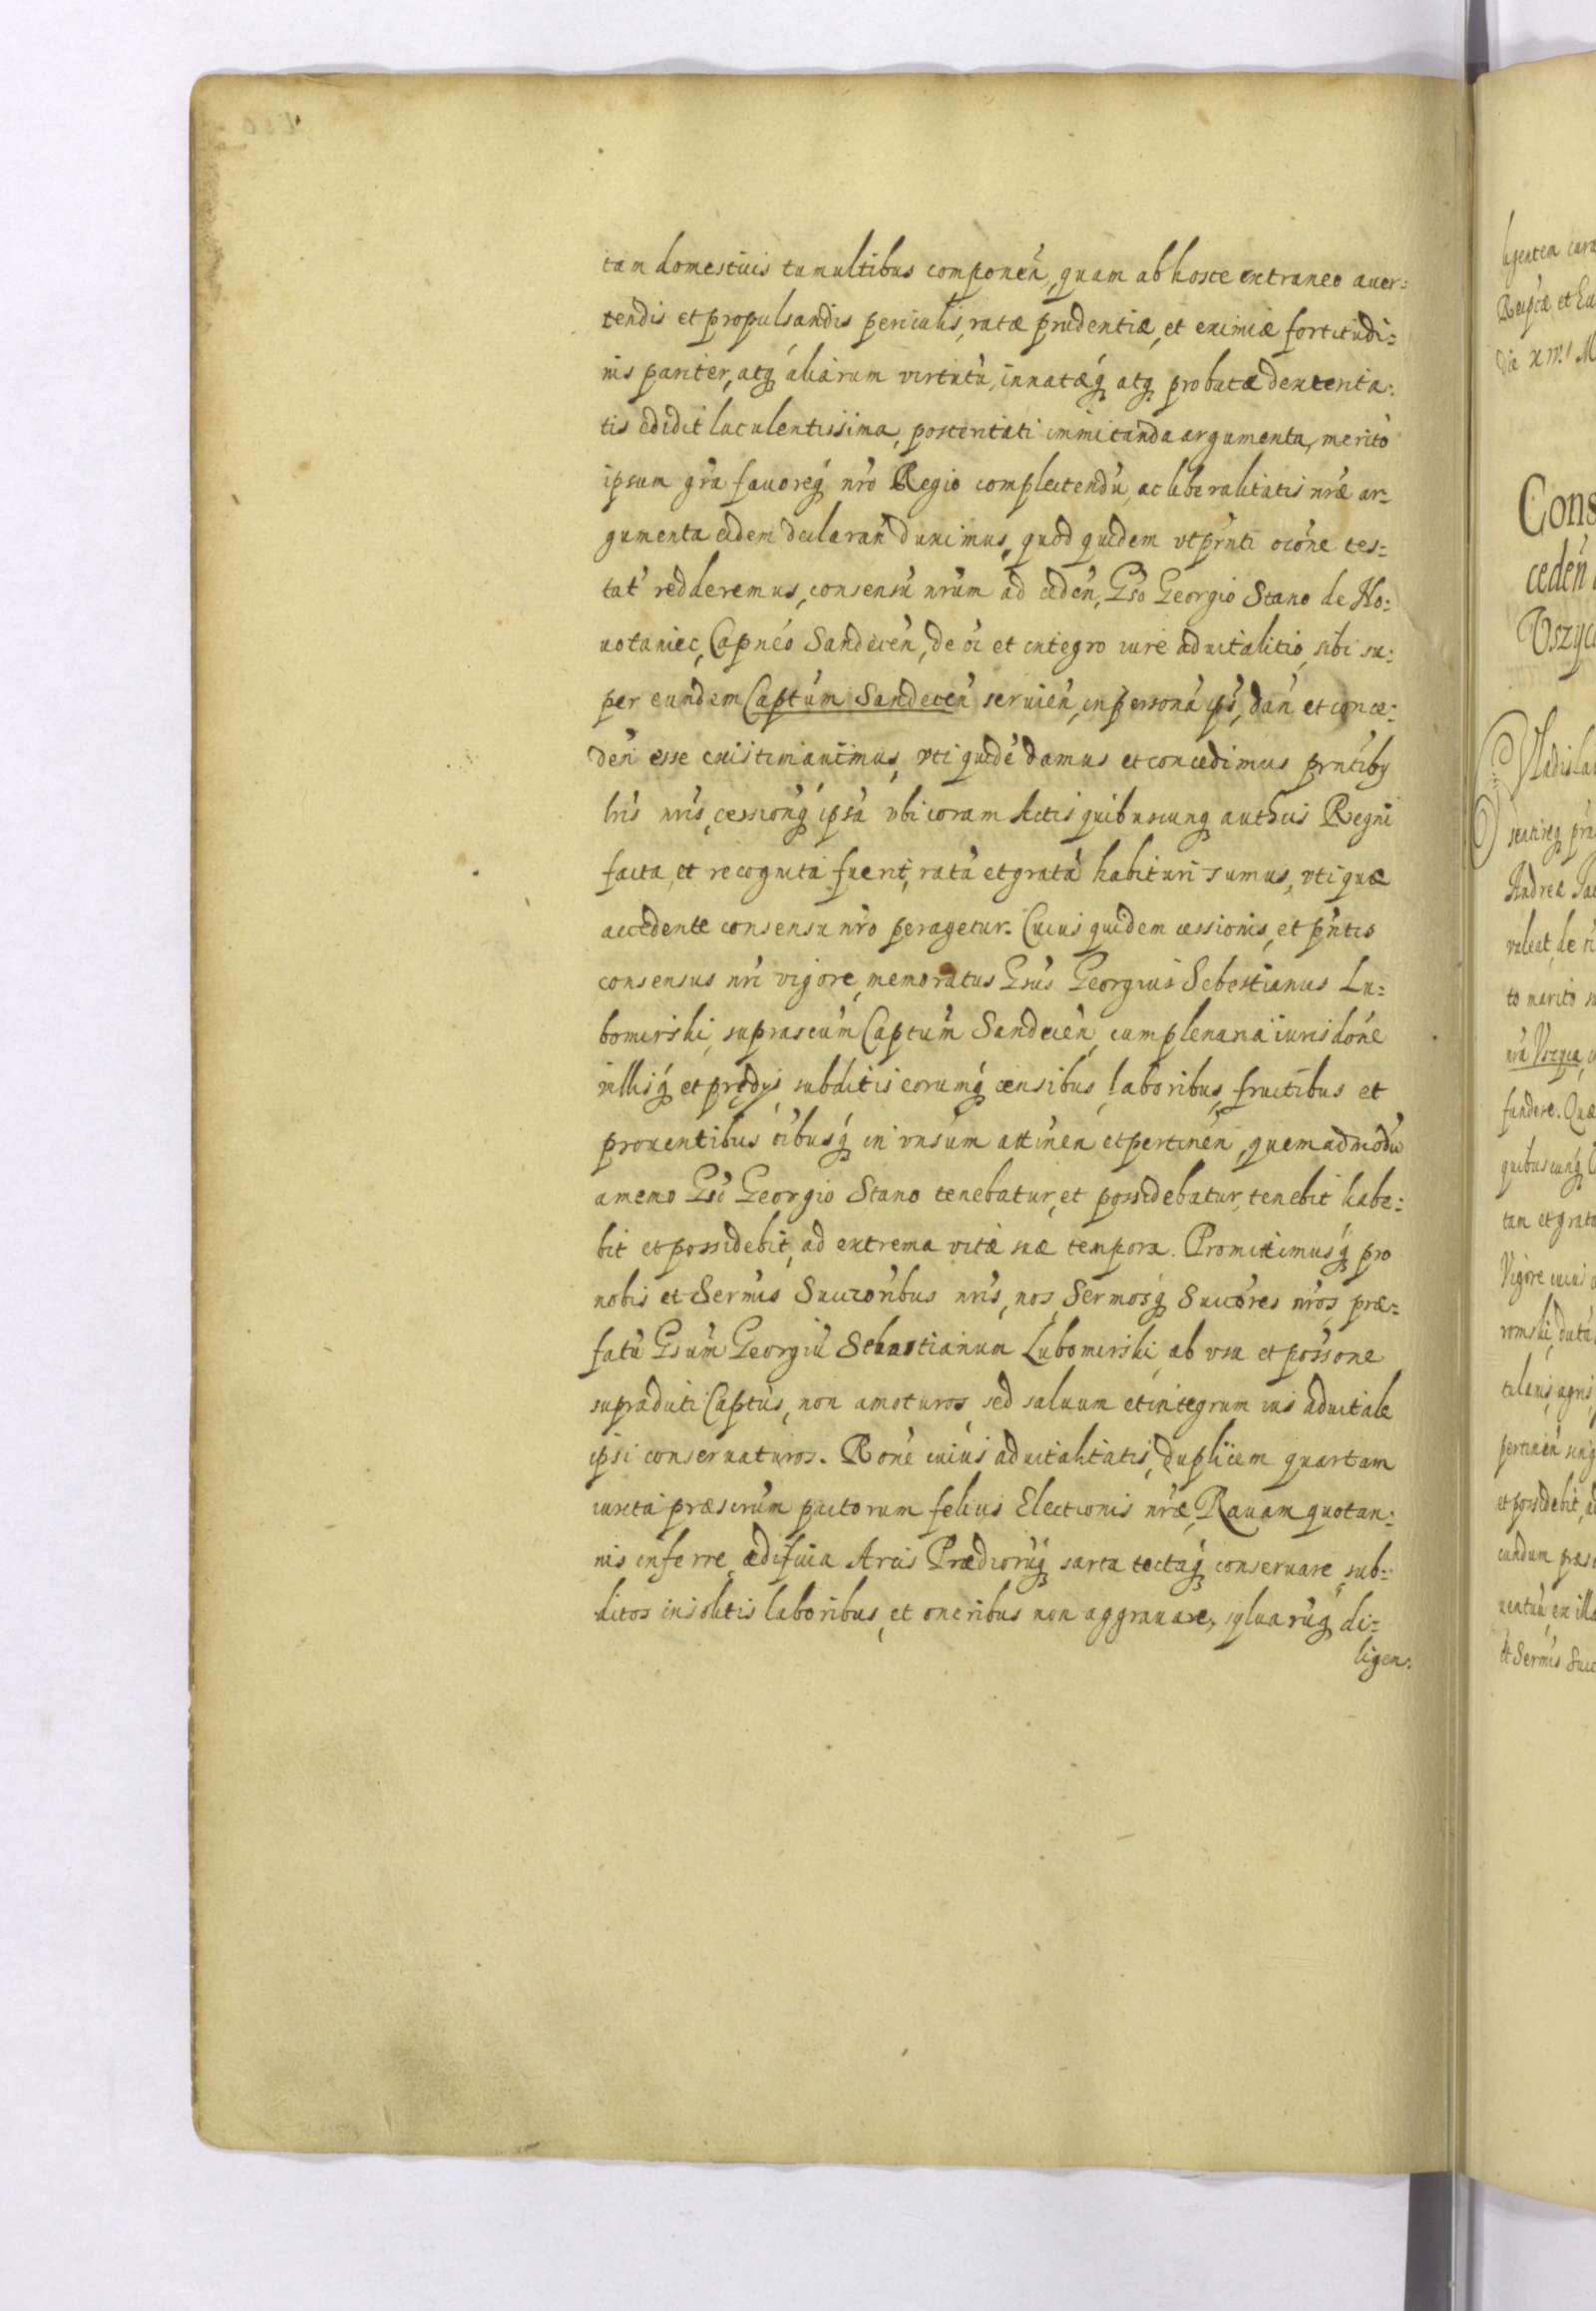 tam domesticis tumultibus componeń, quam ab hoste extraneo auer=
tendis et propulsandis periculis, ratæ prudentiæ, et eximiæ fortitudi=
nis pariter, atq aliarum virtutũ, innatæq atq probatæ dexterita=
tis edidit luculentissima, posteritati immitanda argumenta, merito
ipsum gr̃a fauoreq nr̃o Regio complectendũ, ac liberalitatis nr̃æ ar=
gumenta eidem declarań duximus, quod quidem vt pr̃nti oc̃one tes=
tat̃ redderemus, consensũ nr̃um ad cedeń, Gso Georgio Stano de No=
uotaniec, Capneo Sandeceń, de oi et integro iure aduitalitio, sibi su=
per eundem Captum Sandeceń seruień, in personã ips, dań et conce=
deń esse existimauimus, vti quidẽ damus et concedimus prntibg
lris nris, cessionẽq ipsã vbi coram Actis quibuscunq authcis Regni
facta, et recognita fuerit, ratã et gratã habituri sumus, vti quæ
accedente consensu nr̃o peragetur. Cuius quidem cessionis, et pñtis
consensus nr̃i vigore, memoratus Gsus Georgius Sebestianus Lu=
bomirski, suprascũm Captum Sandeceń, cum plenaria iurisdõne
villisq et prædys, subditis eorumq censibus, laboribus, fructibus et
prouentibus oibusq in vnsum attineń et pertineń, quemadmodũ
a meno Gso Georgio Stano tenebatur, et possidebatur, tenebit habe=
bit et possidebit, ad extrema vitæ suæ tempora. Promittimusq pro
nobis et Sermis Succroribus nris, nos, Sermosq Succores nros, præ=
fatũ Gsum Georgiũ Sebastianum Lubomirski, ab vsu et possone
supradicti Captus, non amoturos, sed saluum et integrum ius aduitale
ipsi conseruaturos. Rone cuius aduitalitatis, duplicem quartam
iuxta præscrum pactorum felicis Electionis nræ, Rauam quotan=
nis inferre, ædificia Arcis Prædiorũq sarta tectaq conseruare, sub=
ditos insolitis laboribus, et oneribus non aggrauare, syluarũq di=
ligen=
ligentem cura
Reipcæ et
Cons
cedeń
Vszyc
Vladisla
Andreæ
valeat, de
to merito
Vszyca
fundere. Quæ
quibuscunq
tam et grata
Vigore cuius
romski, data
agris
pertineń
et possidebit, ad
cundum præs
uentuũ ex illa
et Sermis Succ